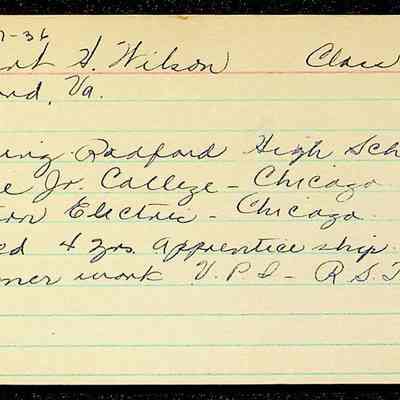 7-36
H. Wilson Class
ord, Va.
ing Radford High Sch
e Jr. College - Chicago
on Electric - Chicago
ed 4 yrs. apprenticeship
mer work V.P.I - R.S.T